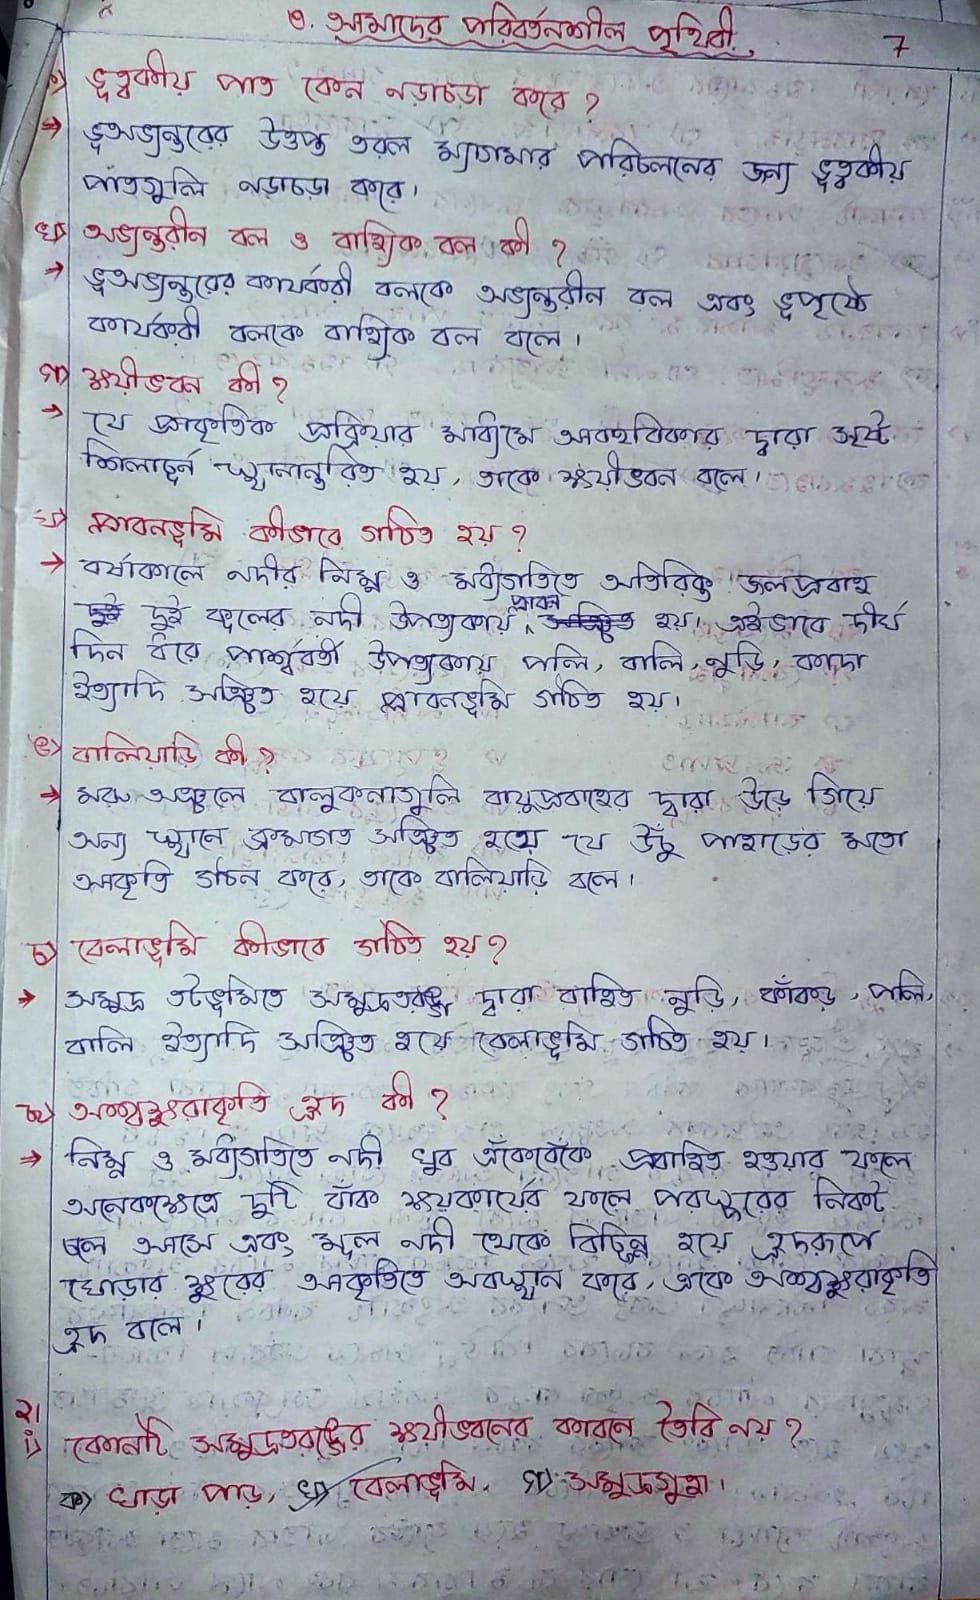 ৩. আমাদের পরিবর্তনশীল পৃথিবী
7
ক) ভূত্বকীয় পাত কেন নড়াচড়া করে ?
→ ভূঅভ্যন্তরের উত্তপ্ত তরল ম্যাগমার পরিচলনের জন্য ভূত্বকীয়
পাতগুলি নড়াচড়া করে।
খ) অভ্যন্তরীন বল ও বাহ্যিক বল কী ?
→ ভূঅভ্যন্তরের কার্যকরী বলকে অভ্যন্তরীন বল এবং ভূপৃষ্ঠে
কার্যকরী বলকে বাহ্যিক বল বলে।
গ) ক্ষয়ীভবন কী ?
→ যে প্রাকৃতিক প্রক্রিয়ার মাধ্যমে আবহবিকার দ্বারা সৃষ্ট
শিলাচূর্ন স্থানান্তরিত হয়, তাকে ক্ষয়ীভবন বলে।
ঘ) প্লাবনভূমি কীভাবে গঠিত হয় ?
→ বর্ষাকালে নদীর নিম্ন ও মধ্যগতিতে অতিরিক্ত জলপ্রবাহ
দুই দুই কূলের নদী উপত্যকায় প্লাবন সঞ্চিত হয়। এইভাবে দীর্ঘ
দিন ধরে পার্শ্ববর্তী উপত্যকায় পলি, বালি, নুড়ি, কাদা
ইত্যাদি সঞ্চিত হয়ে প্লাবনভূমি গঠিত হয়।
ঙ) বালিয়াড়ি কী ?
→ মরু অঞ্চলে বালুকনাগুলি বায়ুপ্রবাহের দ্বারা উড়ে গিয়ে
অন্য স্থানে ক্রমাগত সঞ্চিত হয়ে যে উঁচু পাহাড়ের মতো
আকৃতি গঠন করে, তাকে বালিয়াড়ি বলে।
চ) বেলাভূমি কীভাবে গঠিত হয় ?
→ সমুদ্র তটভূমিতে সমুদ্রতরঙ্গ দ্বারা বাহিত নুড়ি, কাঁকড়, পলি,
বালি ইত্যাদি সঞ্চিত হয়ে বেলাভূমি গঠিত হয়।
ছ) অশ্বক্ষুরাকৃতি হ্রদ কী ?
→ নিম্ন ও মধ্যগতিতে নদী খুব এঁকেবেঁকে প্রবাহিত হওয়ার ফলে
অনেকক্ষেত্রে দুটি বাঁক ক্ষয়কার্যের ফলে পরস্পরের নিকট
চলে আসে এবং মূল নদী থেকে বিচ্ছিন্ন হয়ে হ্রদরূপে
ঘোড়ার ক্ষুরের আকৃতিতে অবস্থান করে, একে অশ্বক্ষুরাকৃতি
হ্রদ বলে।
২।
i) কোনটি সমুদ্রতরঙ্গের ক্ষয়ীভবনের কারনে তৈরি নয় ?
ক) খাড়া পাড়, খ) বেলাভূমি, গ) সমুদ্রগুহা।